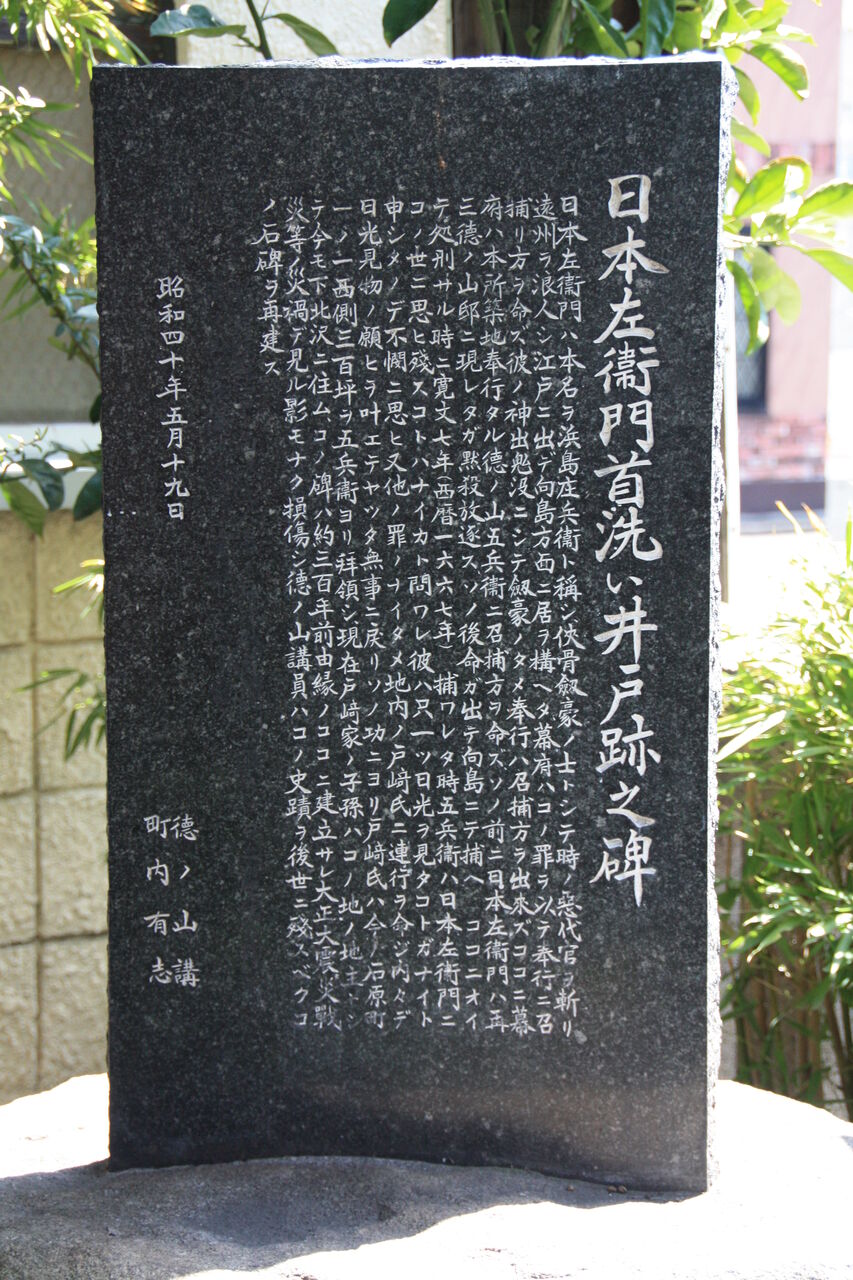 日本左衞門首洗い井戸跡之碑
日本左衞門ハ本名ヲ浜島庄兵衞ト稱シ侠骨劔豪ノ士トシテ時ノ惡代官ヲ斬リ
遠州ヲ浪人シ江戸ニ出デ向島方面ニ居ヲ構ヘタ幕府ハコノ罪ヲ以テ奉行ニ召
捕リ方ヲ命ズ彼ノ神出鬼没ニシテ劔豪ノタメ奉行ハ召捕方ヲ出來ズココニ幕
府ハ本所築地奉行タル德ノ山五兵衞ニ召捕方ヲ命ズソノ前ニ日本左衞門ハ再
三德ノ山邸ニ現レタガ黙殺放逐スソノ後命ガ出テ向島ニテ捕ヘ ココニオイ
テ処刑サル時ニ寛文七年(西暦一六六七年) 捕ワレタ時五兵衞ハ日本左衞門ニ
コノ世ニ思ヒ殘スコトハナイカト問ワレ彼ハ只一ツ日光ヲ見タコトガナイト
申シタノデ不憫ニ思ヒ又他ノ罪ノナイタメ地内ノ戸﨑氏ニ連行ヲ命ジ内々デ
日光見物ノ願ヒヲ叶エテヤッタ無事ニ戻リソノ功ニヨリ戸﨑氏ハ今ノ石原町
一ノ一西側三百坪ヲ五兵衞ヨリ拜領シ現在戸﨑家ノ子孫ハコノ地ノ地主トシ
テ今モ下北沢ニ住ムコノ碑ハ約三百年前由縁ノココニ建立サレ大正大震災戰
災等ノ災禍デ見ル影モナク損傷シ德ノ山講員ハコノ史蹟ヲ後世ニ殘スベクコ
ノ石碑ヲ再建ス
昭和四十年五月十九日
德ノ山講
町内有志